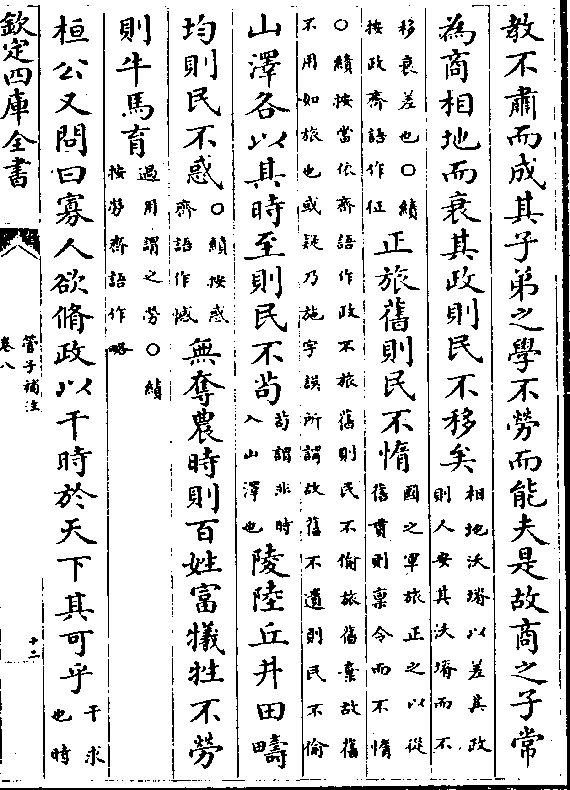 教不肅而成其子弟之學不勞而能夫是故商之子常
為商相地而衰其政則民不移矣
相地沃塉以差其政
則人安其沃塉而不
移衰差也○績
按政齊語作征
正旅舊則民不惰
國之軍旅正之以從
舊貫則稟令而不惰
○績按當依齊語作政不旅舊則民不偷旅舊棄故舊
不用如旅也或疑乃施字誤所謂故舊不遺則民不偷
山澤各以其時至則民不苟
苟謂非時
入山澤也
陵陸丘井田疇
均則民不惑
○績按惑
齊語作憾
無奪農時則百姓富犧牲不勞
則牛馬育
過用謂之勞○績
按勞齊語作略
桓公又問曰寡人欲脩政以干時於天下其可乎
干求
也時
欽定四庫全書
管子補注
卷八
十二